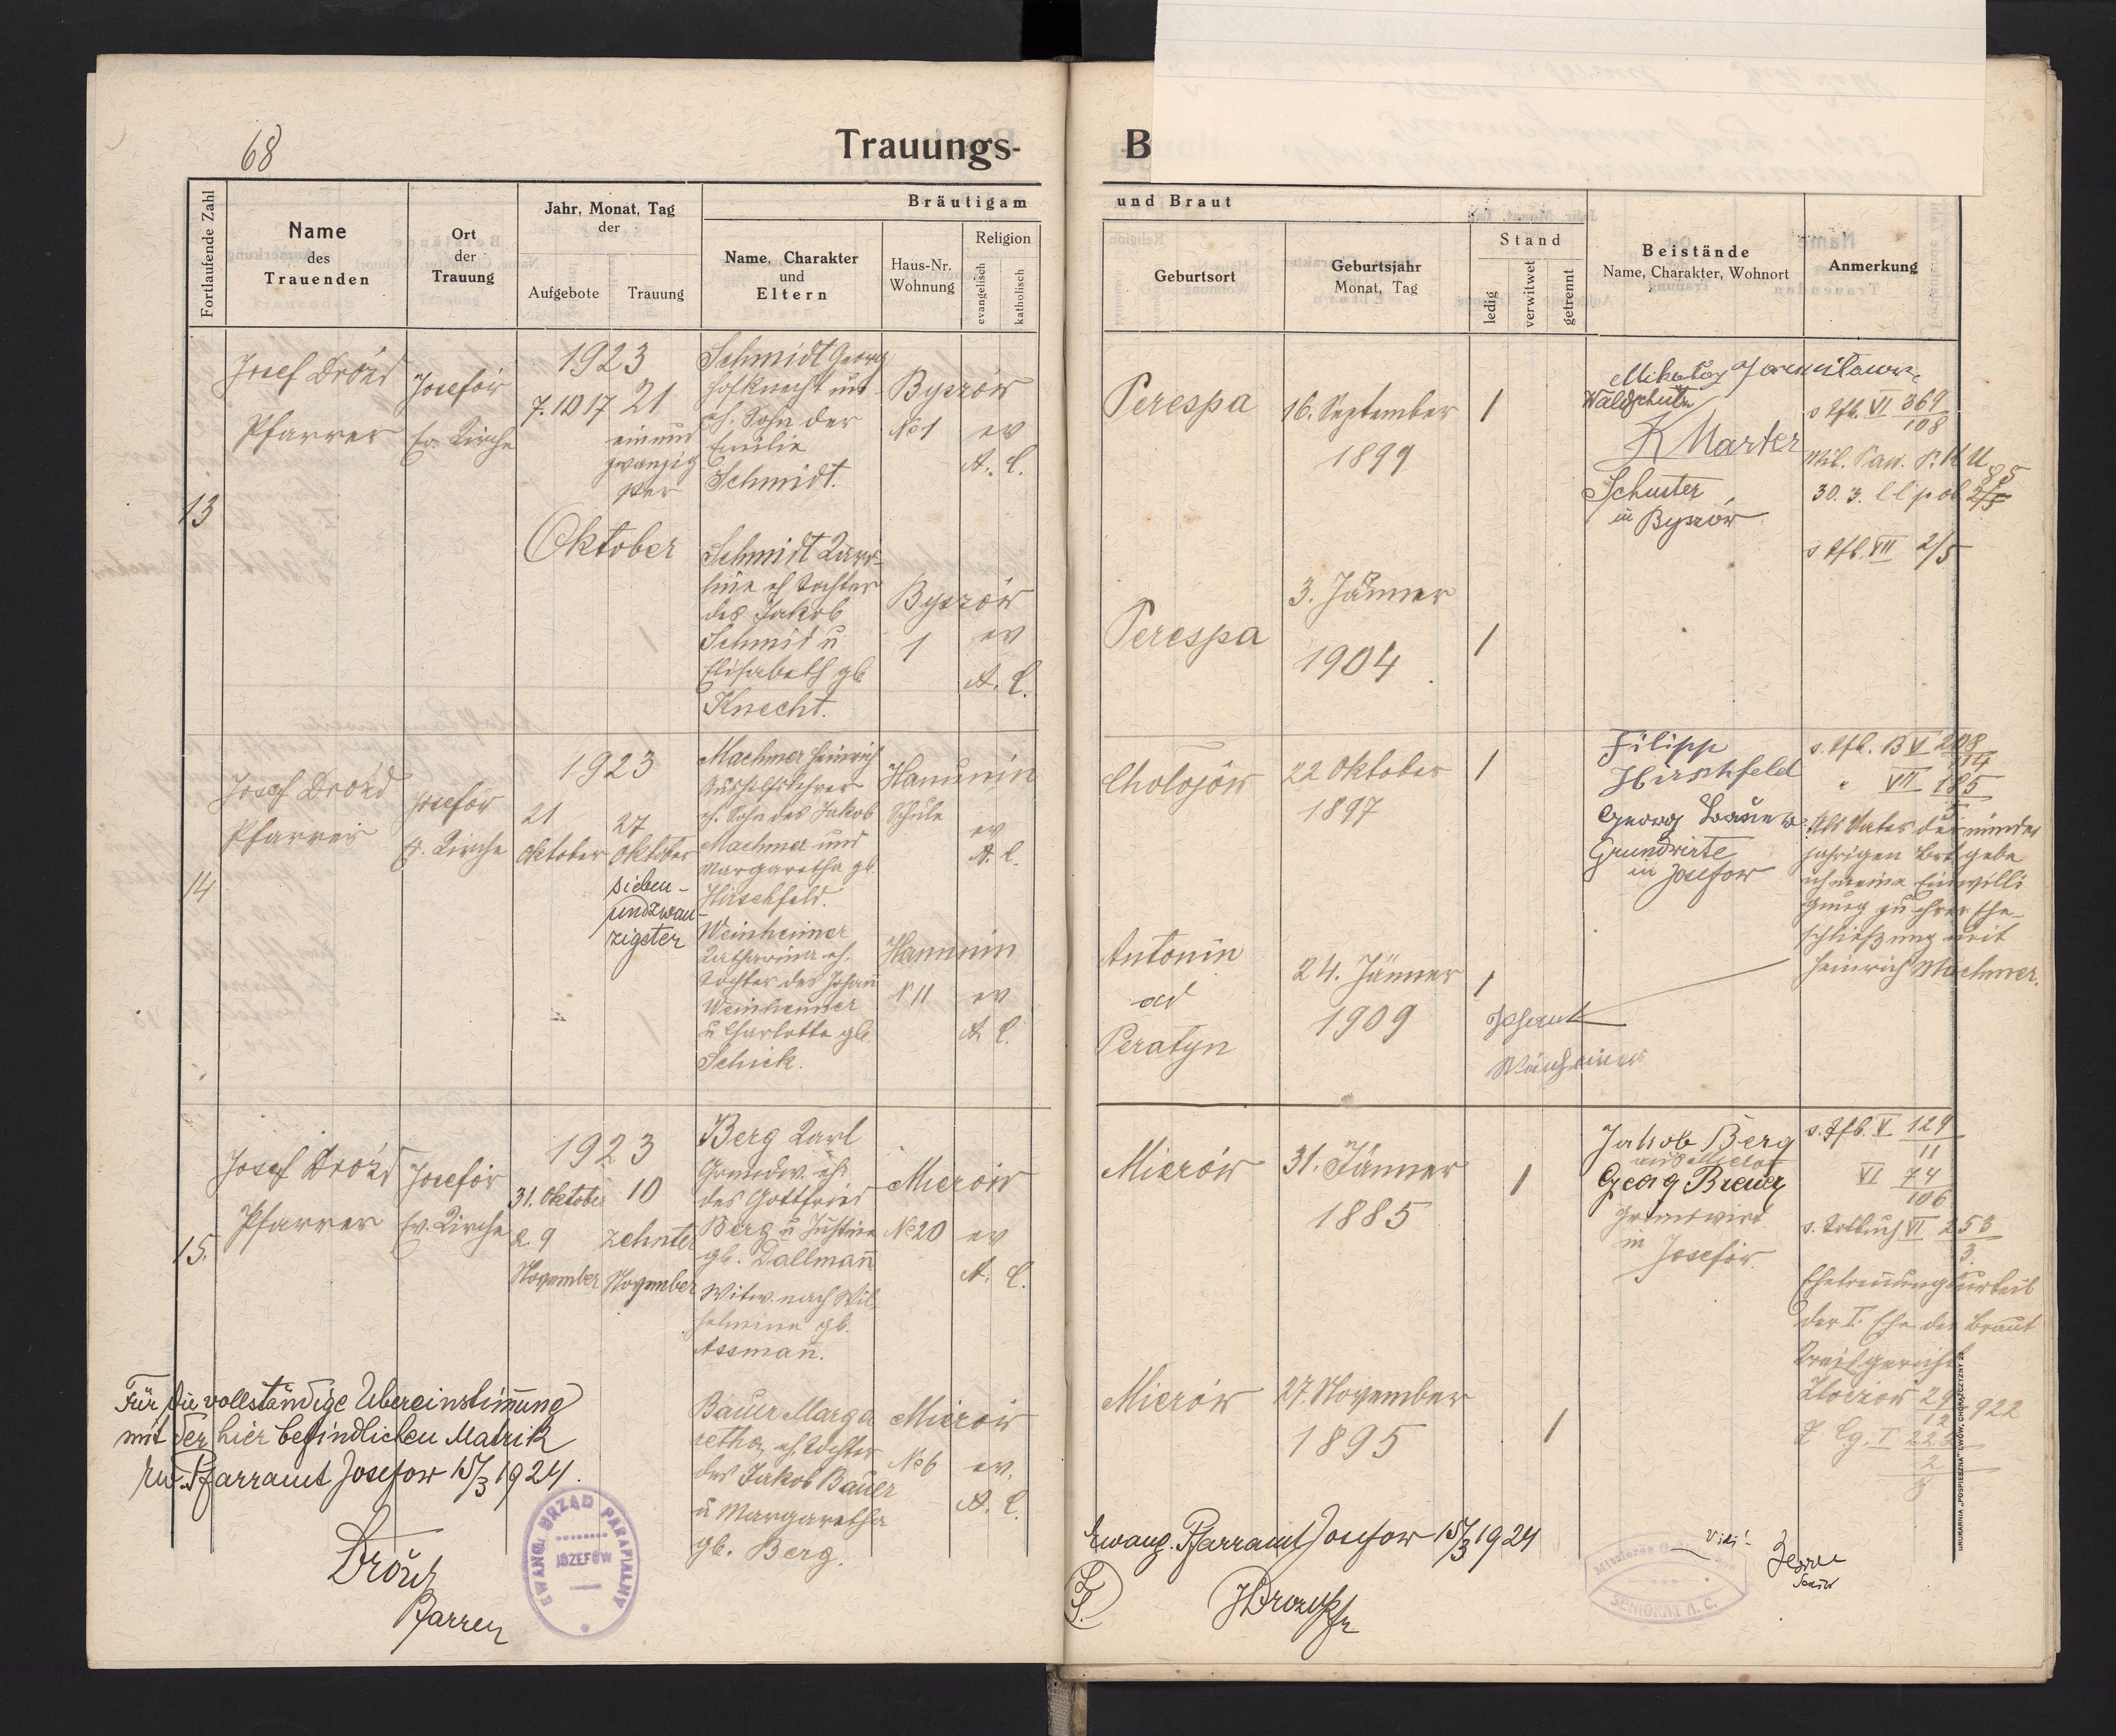 68
Trauungs-
B
Fortlaufende Zahl
Name
des
Trauenden
Ort
der
Trauung
Jahr, Monat, Tag
der
Aufgebote
Trauung
Bräutigam
Name, Charakter
und
Eltern
Haus-Nr.
Wohnung
Religion
evangelisch
katholisch
und Braut
Geburtsort
Geburtsjahr
Monat, Tag
Stand
ledig
verwitwet
getrennt
Beistände
Name, Charakter, Wohnort
Anmerkung
13
Josef Drozd
Pfarrer
Josefów
Ev. Kirche
1923
7. 10 17
21
ein und
zwanzig
ster
Oktober
Schmidt Georg
Hofknecht un-
eh. Sohn der
Emilie
Schmidt.
Byszów
No 1
ev
A. C.
Perespa
16. September
1899
1
Waldschütz
K Marter
Schuster
in Byszów
s Tfb. VI 369
108
s Tfb. VII 2/5
Schmidt Karo-
line eh Tochter
des Jakob
Schmid u
Elisabeth gb
Knecht.
Byszów
1
ev
A. C.
Perespa
3. Jänner
1904
1
14
Josef Drozd
Pfarrer
Josefów
Ev. Kirche
1923
21
Oktober
27
Oktober
sieben-
undzwan-
zigster
Machmer Heinrich
Aushilfslehrer
eh. Sohn des Jakob
Machmer und
Margaretha gb.
Hirschfeld.
Hanunin
Schule
ev
A. C.
Chołojów
22 Oktober
1897
1
Filipp
Hirschfeld
Georg Bauer
Grundwirte
in Josefow
s. Tfb. B V 208
114
" VII 185
5
Als Vater der minder
jährigen Brt gebe
ich meine Einwilli
gung zu ihrer Ehe-
schließung mit
Heinrich Machmer.
Weinheimer
Katharina eh.
Tochter des Johann
Weinheimer
u Charlotte gb.
Schick.
Hanunin
N 11
ev
A. C.
Antonin
ad
Peratyn
24. Jänner
1909
1
Johann
Weinheimer
15.
Josef Drozd
Pfarrer
Josefów
Ev. Kirche
1923
31. Oktober
2. 9
November
10
zehnter
November
Berg Karl
Grundw. eh S
des Gottfried
Berg u Justine
gb. Dallmann
Witw. nach Wil-
helmine gb.
Assmann.
Mierów
No 20
ev
A. C.
Mierów
31. Jänner
1885
1
Jakob Berg
aus Mierów
Georg Breuer
Grundwirt
in Josefów.
s. Tfb. V 129
11
VI 74
106
s. Totbuch VI 253
3.
Ehetrennungsurteil
der I. Ehe der Braut
Kreisgericht
Złoczów 29/12 922
Z Cg. I 222
2
Bauer Marga
retha, eh. Tochter
des Jakob Bauer
u Margaretha
gb. Berg.
Mierów
No 6
ev.
A. C.
Mierów
27. November
1895
1
Für die vollständige Übereinstimmung
mit der hier befindlichen Matrik
Ev. Pfarramt Josefow 15/3 1924.
Drozd
Pfarrer
EWANG. URZĄD PARAFIALNY
JÓZEFÓW
Evang. Pfarramt Josefow 15/3 1924
JDrozd Pfr
Vidi!
Senior
SENIORAT A.C.
DRUKARNIA „POSPIESZNA" LWÓW, CHORĄŻCZYZNY 23